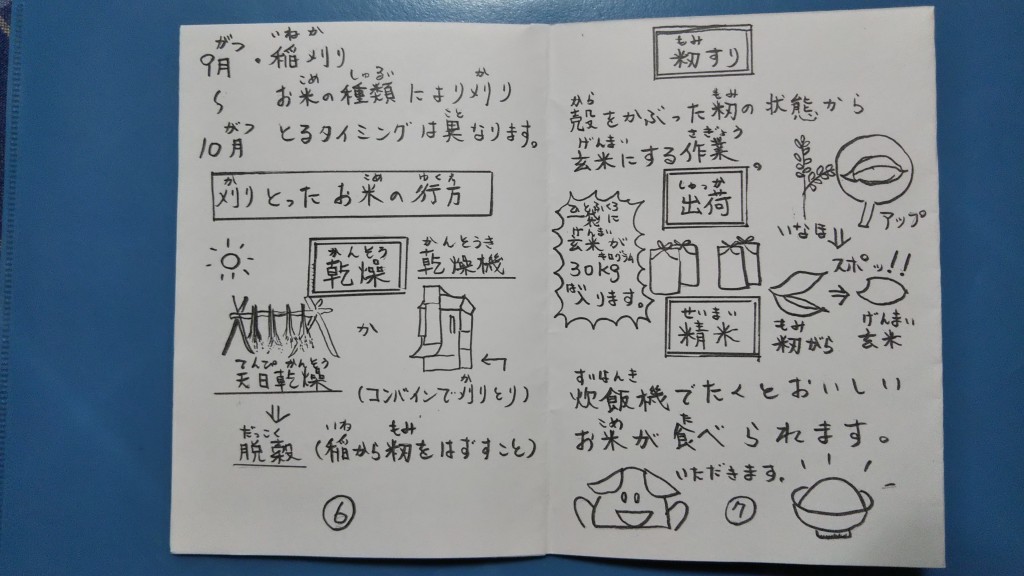 9月 ・稲刈り
がつ いねか
〜 お米の種類により刈り
こめ しゅるい か
10月 とるタイミングは異なります。
がつ こと
刈りとったお米の行方
か こめ ゆくえ
乾燥
かんそう
乾燥機
かんそうき
か
天日乾燥
てんぴかんそう
(コンバインで刈りとり)
か
⇓
脱穀 (稲から籾をはずすこと)
だっこく いね もみ
⑥
籾すり
もみ
殻をかぶった籾の状態から
から もみ
玄米にする作業。
げんまい さぎょう
出荷
しゅっか
ひとふくろ
袋に
げんまい
玄米が
キログラム
30kg
は
入ります。
アップ
いなほ
⇓
スポッ!!
籾がら → 玄米
もみ げんまい
精米
せいまい
炊飯機でたくとおいしい
すいはんき
お米が食べられます。
こめ た
いただきます。
⑦